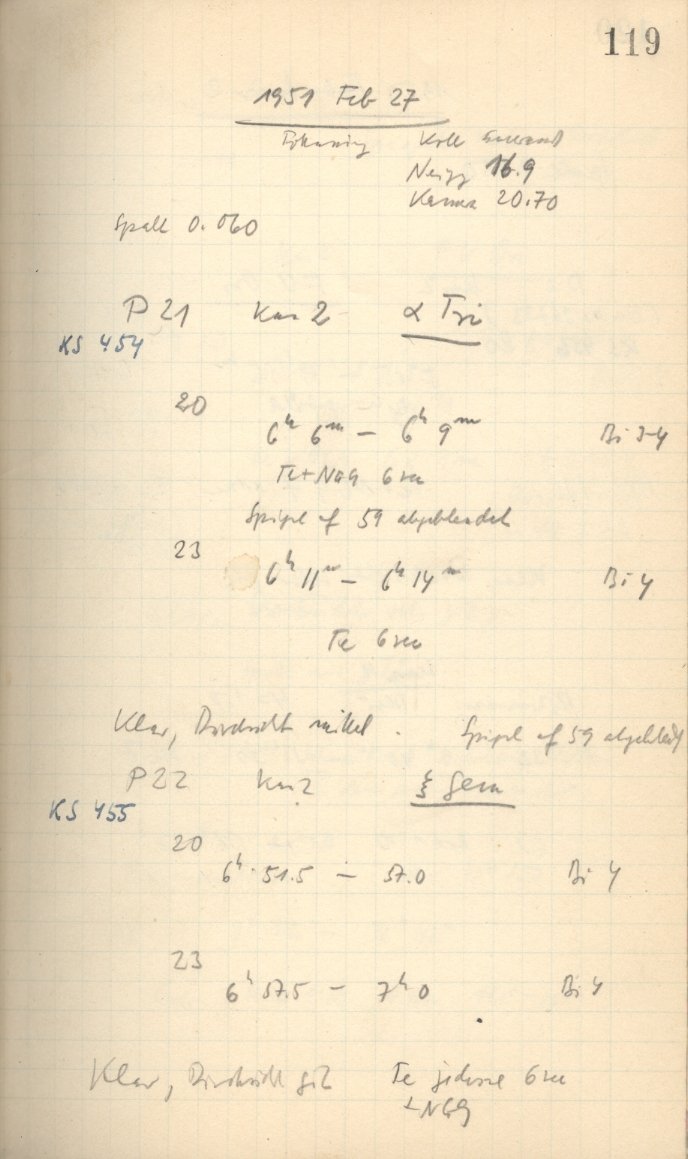 119
1951 Feb 27
Koll
Neigg 16.9
Kamera 20.70
Spalt 0.060
P 21 Kas 2 α Tri
KS 454
20
6h 6m — 6h 9m Bi 3-4
Te+NaG 6 sec
Spiegel auf 59 abgeblendet
23
6h 11m — 6h 14m Bi 4
Te 6 sec
Klar, Durchsicht mittel. Spiegel auf 59 abgeblendet
P 22 Kas 2 ξ Gem
KS 455
20
6h 51.5 — 57.0 Bi 4
23
6h 57.5 — 7h 0 Bi 4
Klar, Durchsicht gut Te 6 sec